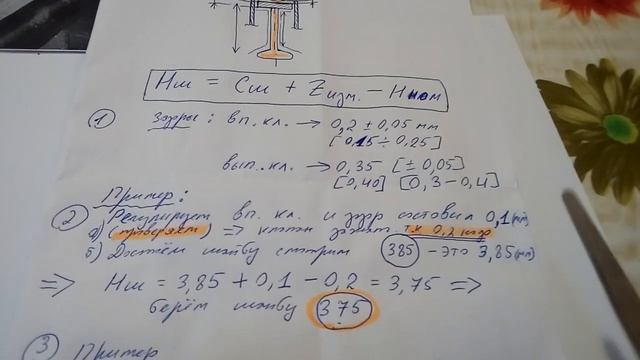 Hш = Cш + Zизм. - Hном
① Зазоры: вп. кл. → 0,2 ± 0,05 мм
[0,15 ÷ 0,25]
вып. кл. → 0,35 [± 0,05]
[0,40] [0,3 - 0,4]
Пример:
② Регулируем вп. кл. и зазор составил 0,1 (мм)
а) (проверяем) ⇒ клапан зажат т.к 0,2 надо
б) Достаём шайбу смотрим 385 - это 3,85 (мм)
⇒ Hш = 3,85 + 0,1 - 0,2 = 3,75 ⇒
берём шайбу 375
③ Пример